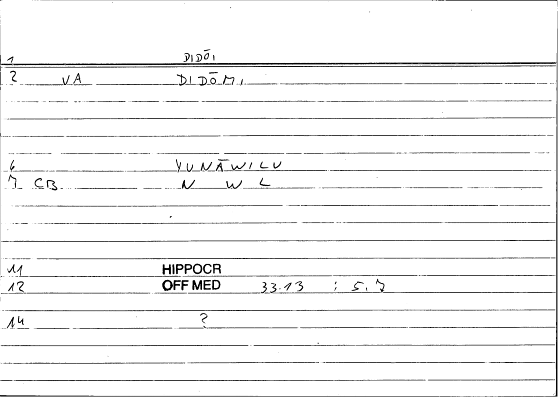 1 DIDŌI
2 VA DIDŌMI
6 YUNĀWILU
7 CB N W L
11 HIPPOCR
12 OFF MED 33.13 : 5.7
14 ?